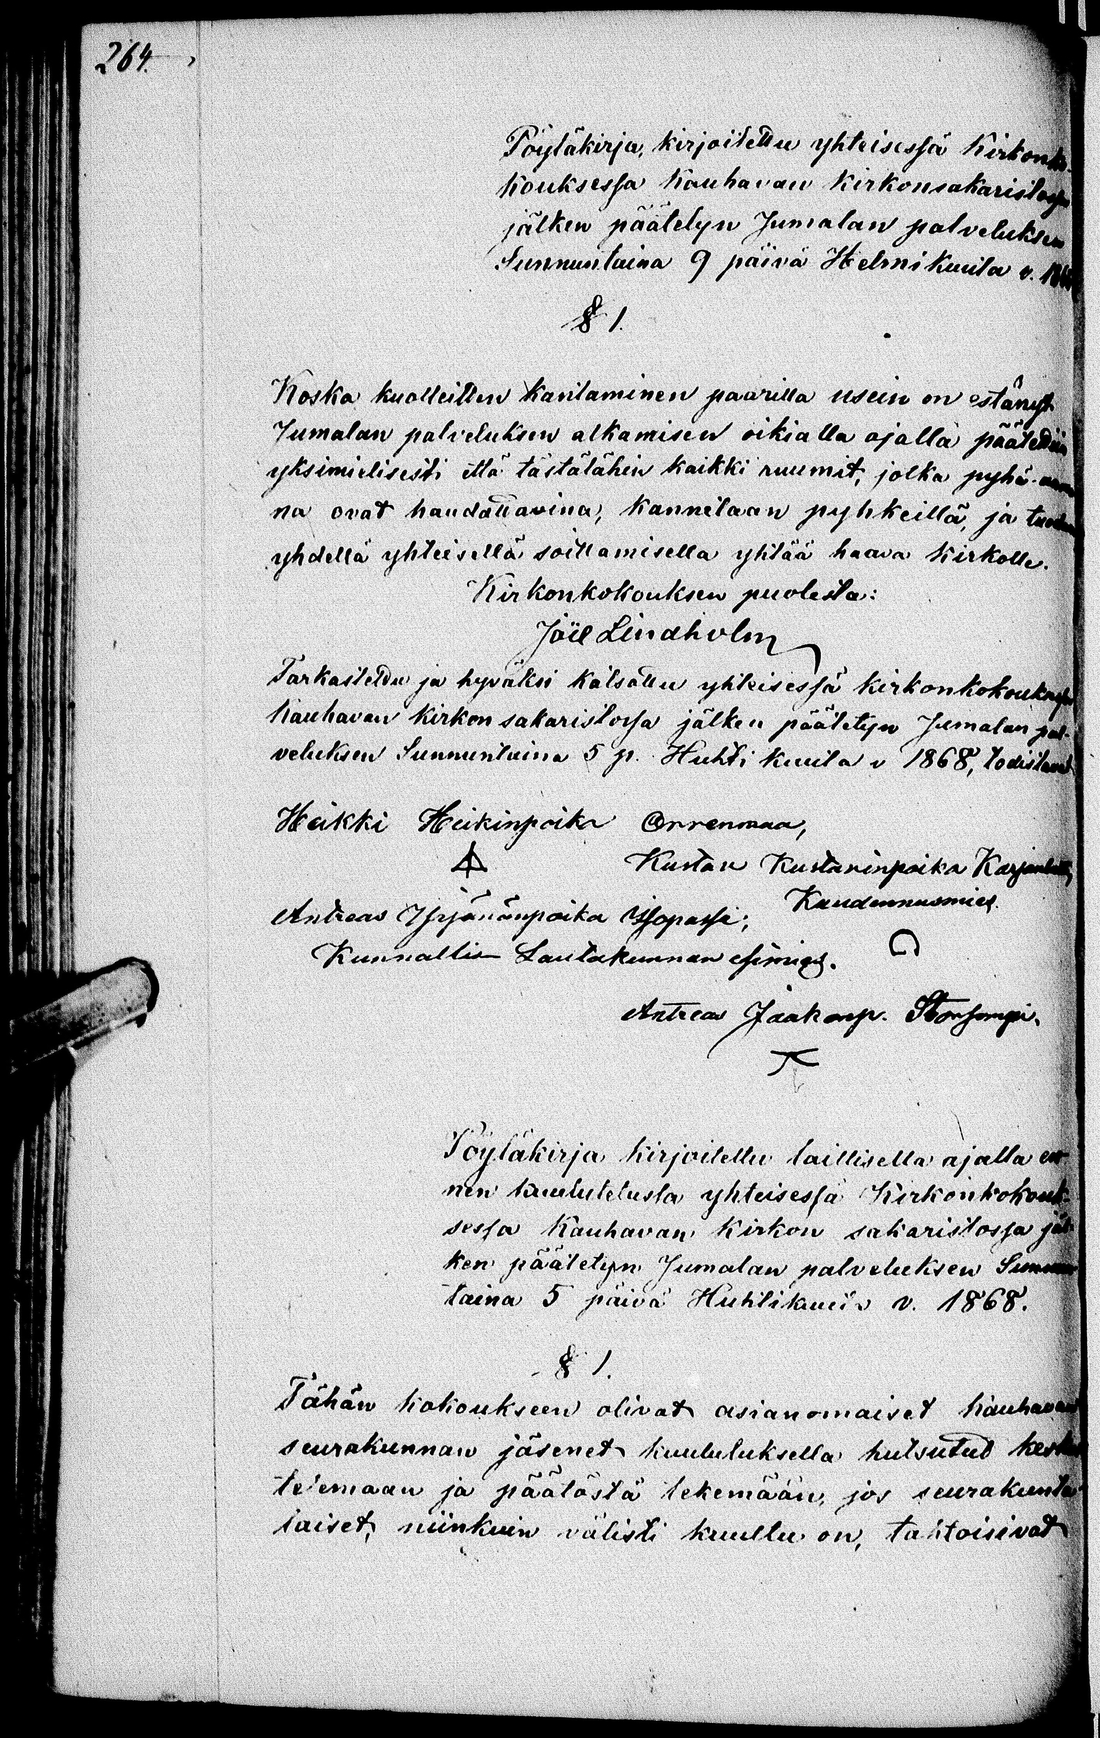 264.
Pöytäkirja, kirjoitettu yhteisessä Kirkonko-
kouksessa Kauhavan Kirkonsakaristossa
jälken päätetyn Jumalan palveluksen
Sunnuntaina 9 päivä Helmikuuta v.
§ 1.
Koska kuolleitten kantaminen paarilla usein on estänyt
Jumalan palveluksen alkamisen oikialla ajalla päätettiin
yksimielisesti että tästälähin kaikki ruumit, jotka pyhä-
na ovat haudattavina, kannetaan pyhkeillä, ja
yhdellä yhteisellä soittamisella yhtää haava kirkolle.
Kirkonkokouksen puolesta:
Joil Lindholm
Tarkastettu ja hyväksi katsottu yhteisessä kirkonkokouksessa
Kauhavan kirkon sakaristossa jälken päätetyn Jumalan pal-
veluksen Sunnuntaina 5 p. Huhti kuuta v 1868, todistavat
Heikki Heikinpoika Orrenmaa,
Kustaa Kustaninpoika
Antreas Yrjänänpoika
Kunnallis Lautakunnan esimies.
Antreas Jaakonp.
Pöytäkirja kirjoitettu laillisella ajalla en-
nen kuulutetusta yhteisessä Kirkonkokouk-
sessa Kauhavan Kirkon sakaristossa jäl-
ken päätetyn Jumalan palveluksen Sunnun
taina 5 päivä Huhtikuuta v. 1868.
§ 1.
Tähän kokoukseen olivat asianomaiset Kauhavan
seurakunnan jäsenet kuulutuksella kutsutut keskus
telemaan ja päätöstä tekemään, jos seurakunta
laiset, niinkuin välisti kuultu on, tahtoisivat